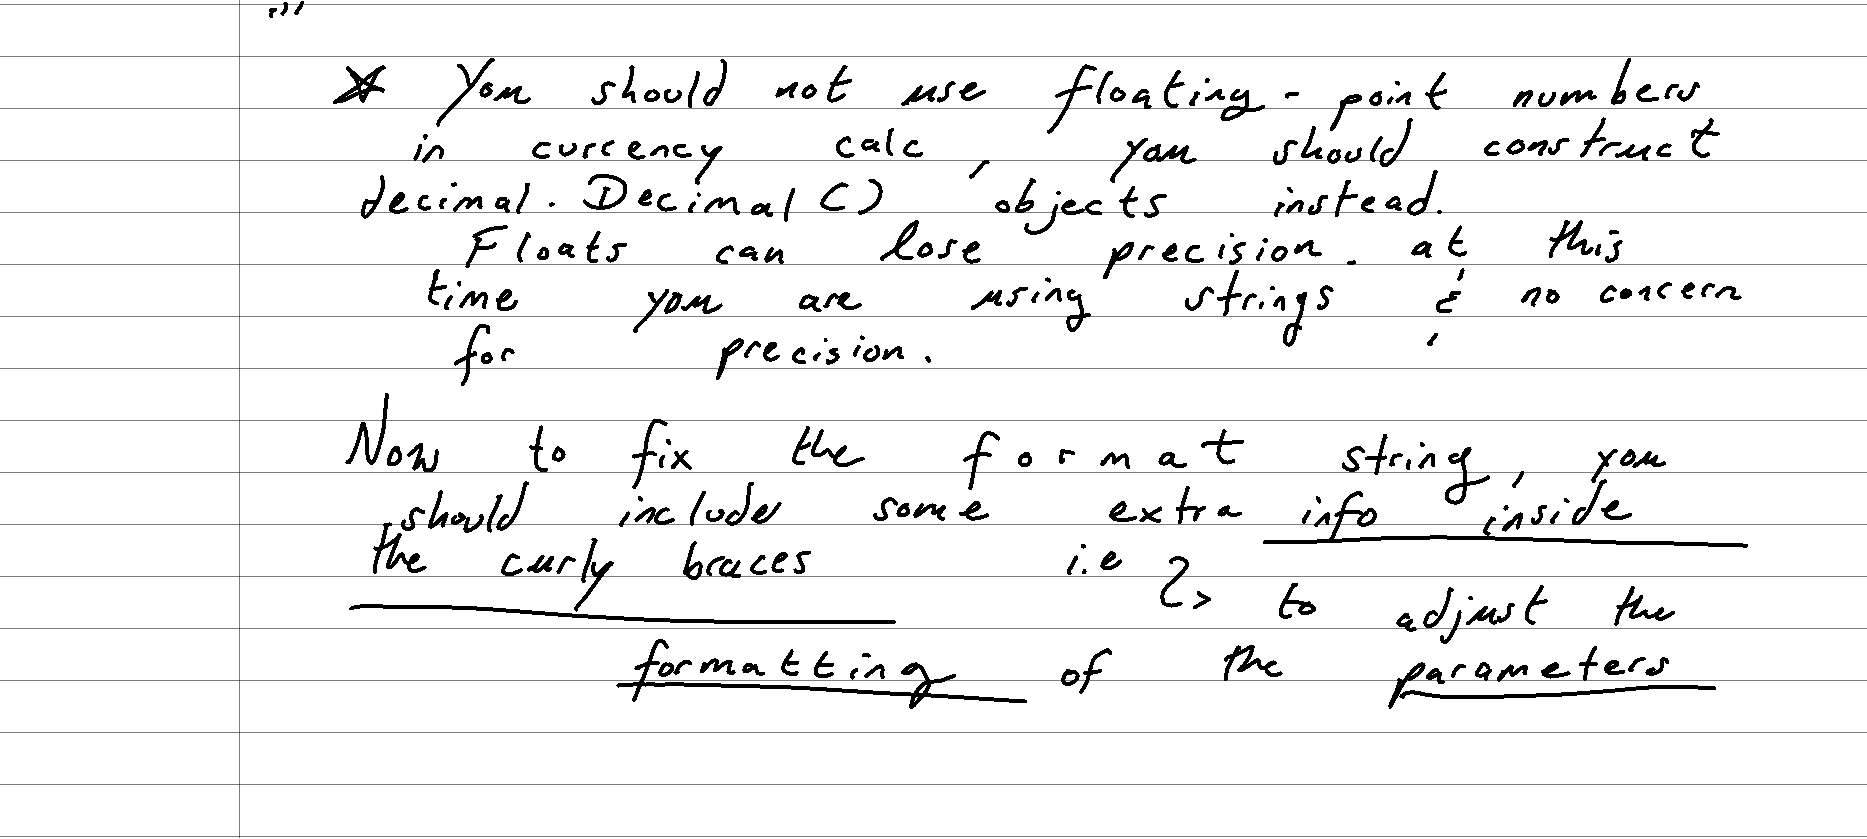 "'
* You should not use floating-point numbers
in currency calc, you should construct
decimal.Decimal() objects instead.
Floats can lose precision. at this
time you are using strings & no concern
for precision.
Now to fix the format string, you
should include some extra info inside
the curly braces i.e to adjust the
formatting of the parameters